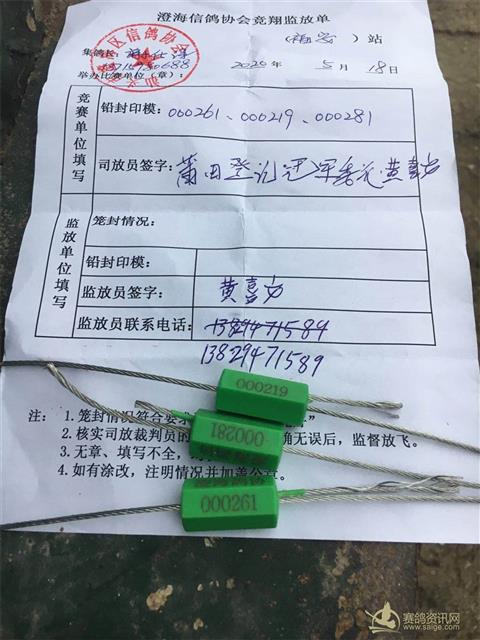 澄海信鸽协会竞翔监放单
站
区信鸽协会
集鸽长
举办比赛单位（章）：
2020年 5月 18日
竞赛单位填写
铅封印模：000261、000219、000281
司放员签字：莆田登记冠军 黄喜
监放单位填写
笼封情况：
铅封印模：
监放员签字：黄喜
监放员联系电话：13829471589
13829471589
000219
000281
000261
注：1.笼封情况符合要求
2.核实司放裁判员的 确无误后，监督放飞。
3.无章、填写不全，
4.如有涂改，注明情况并加盖公章。
赛鸽资讯网
www.saige.com